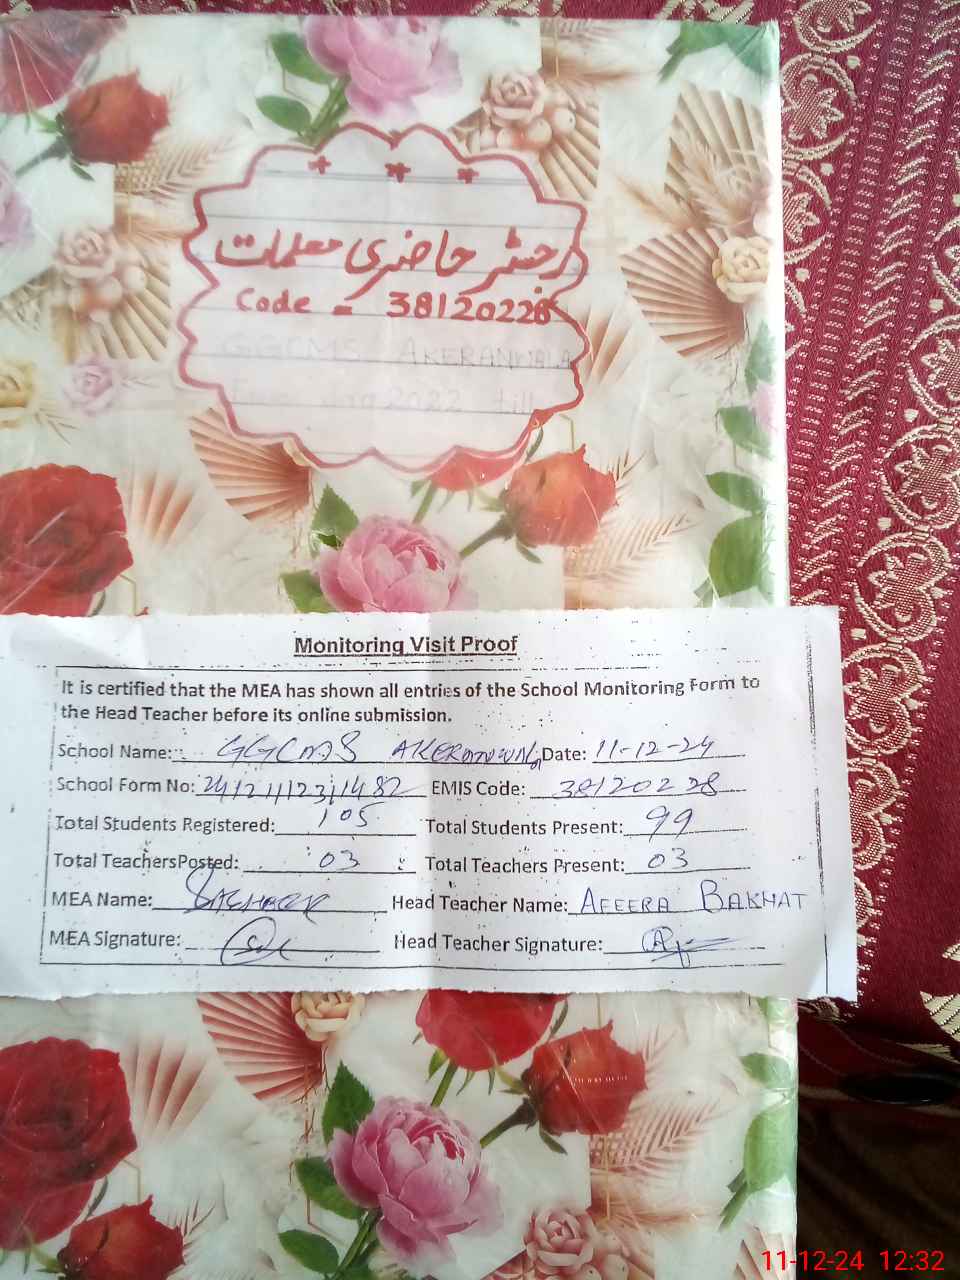 رجسٹر حاضری معلمات
Code = 38120228
GGCMS AKERANWALA
From Jan 2022 till
Monitoring Visit Proof
It is certified that the MEA has shown all entries of the School Monitoring Form to
the Head Teacher before its online submission.
School Name: GGCMS Date: 11-12-24
School Form No: EMIS Code: 38120228
Total Students Registered: 105 Total Students Present: 99
Total TeachersPosted: 03 Total Teachers Present: 03
MEA Name: Head Teacher Name: AFEERA BAKHAT
MEA Signature: Head Teacher Signature:
11-12-24 12:32